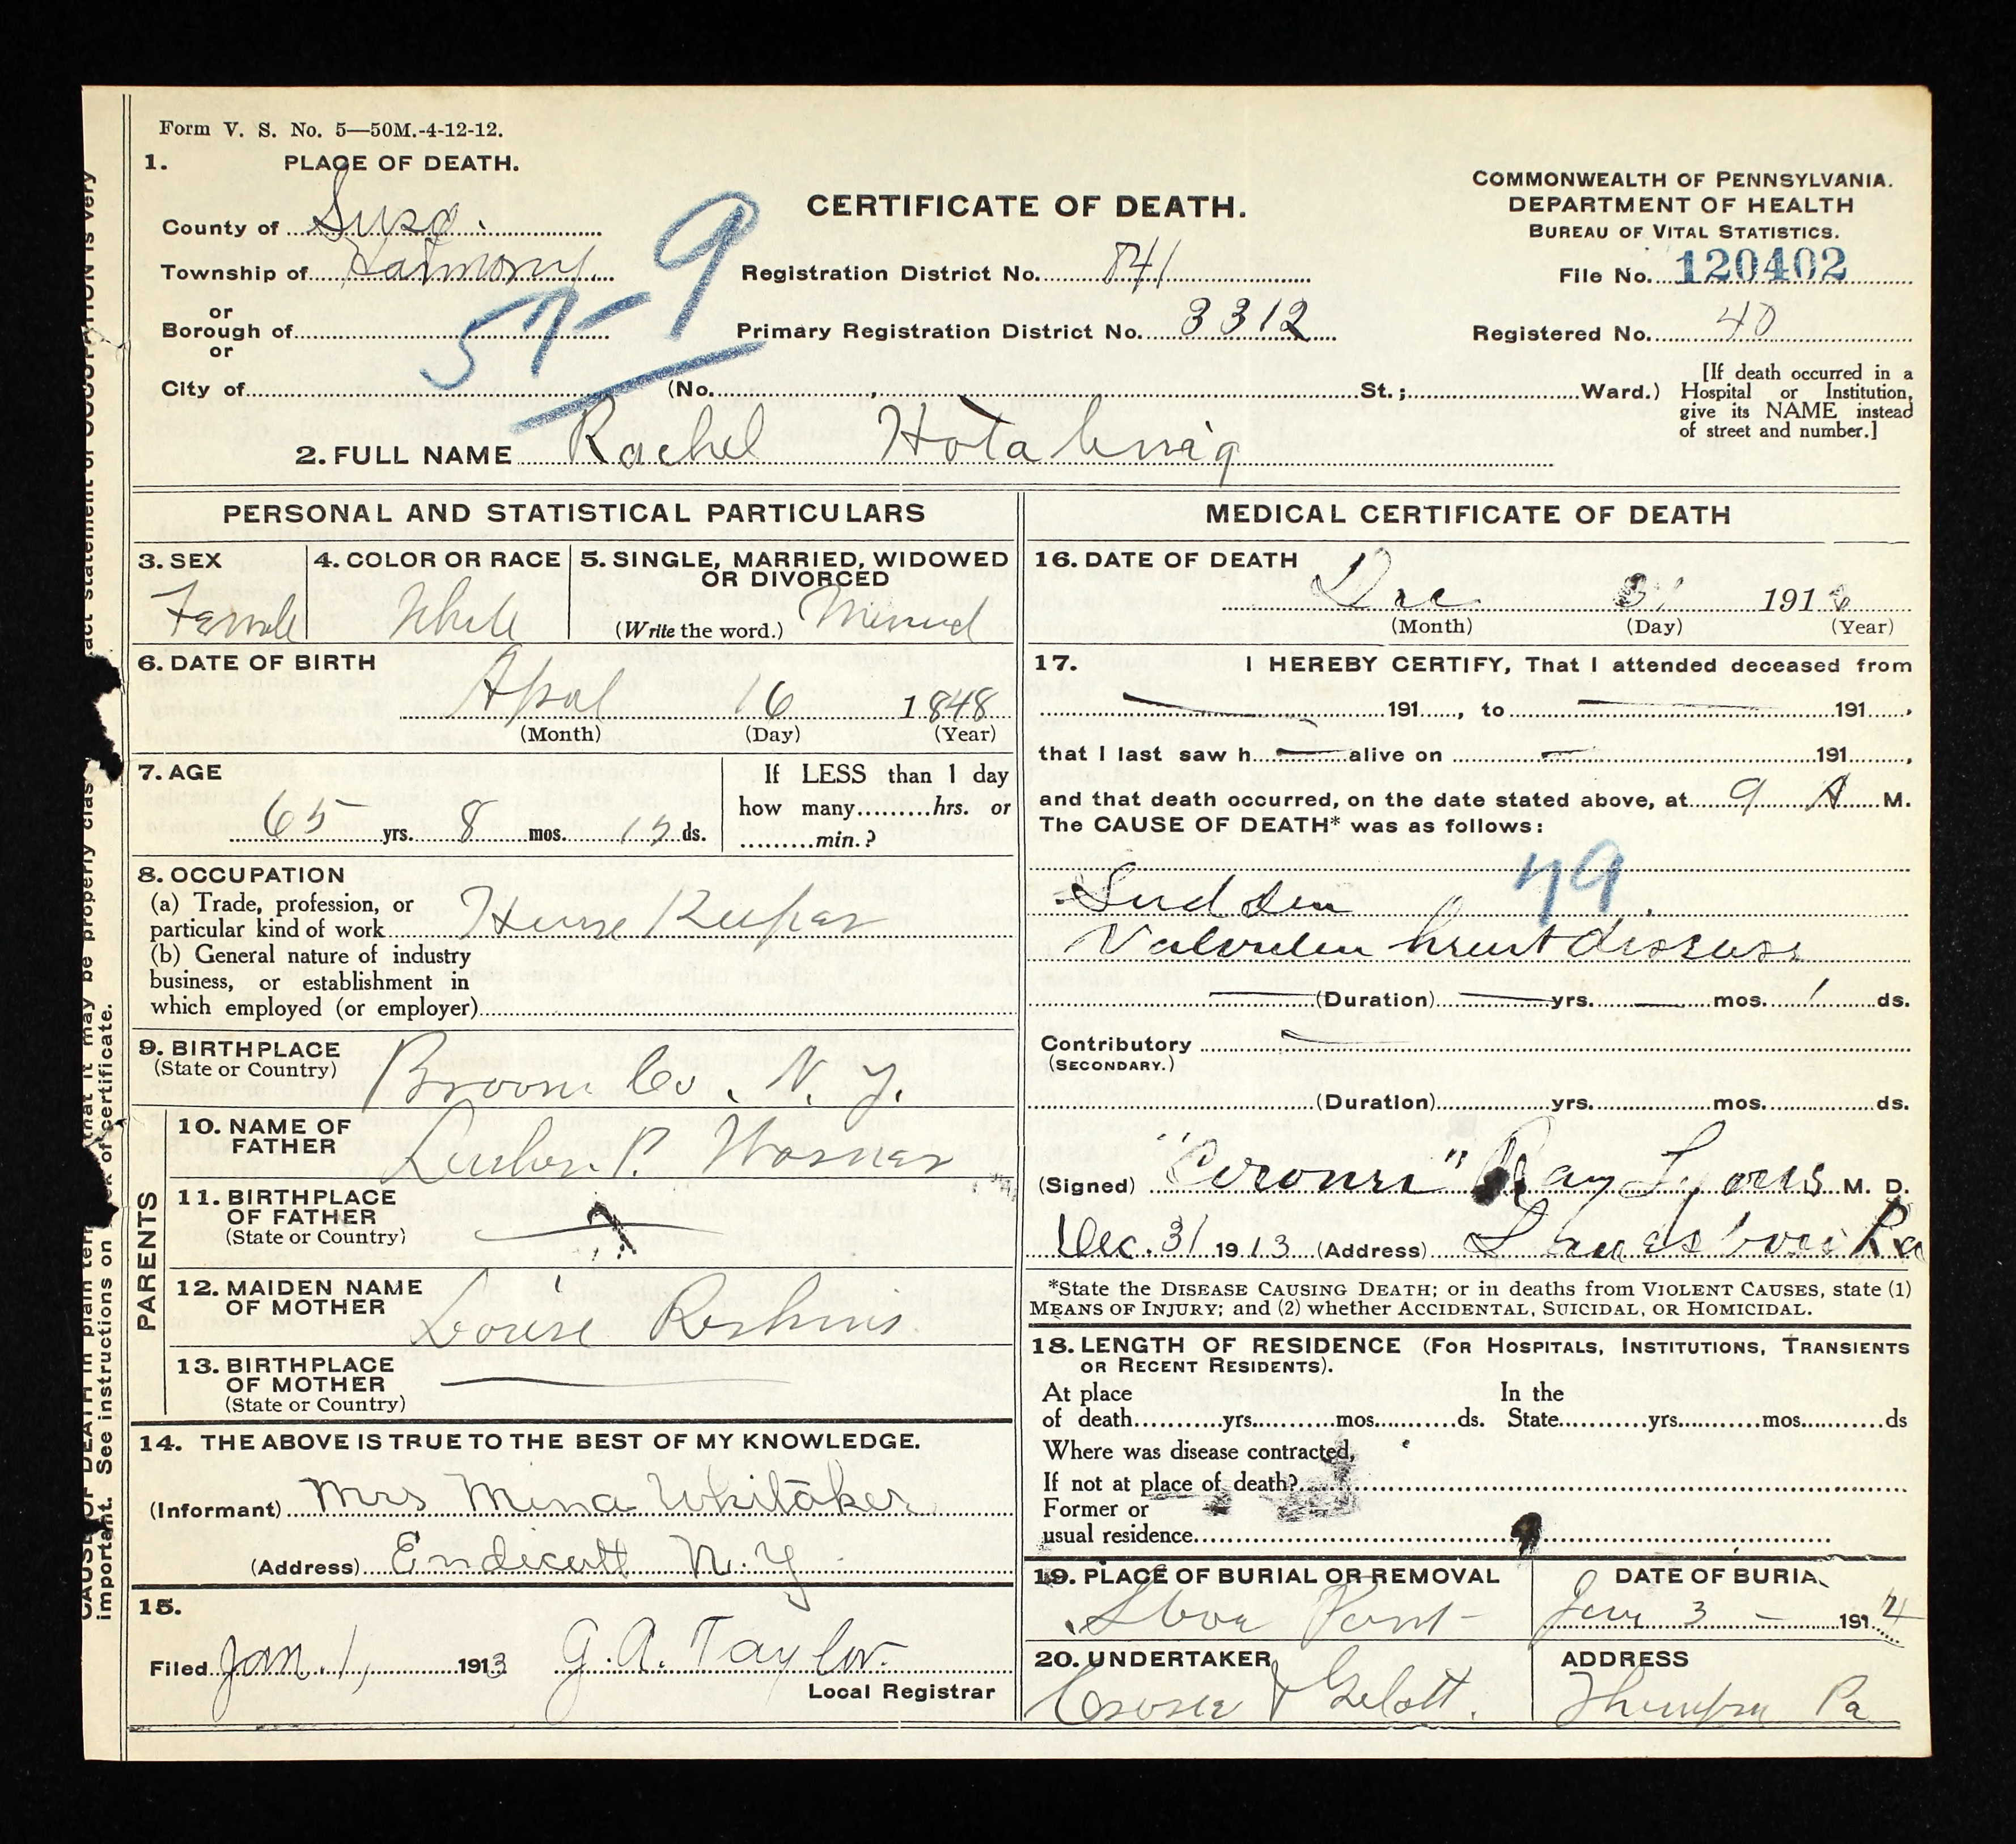 Form V. S. No. 5—50M.-4-12-12.
1. PLACE OF DEATH.
County of Susq.
Township of Harmony
or
Borough of
or
City of
57-9
CERTIFICATE OF DEATH.
Registration District No. 841
Primary Registration District No. 3312
(No. , St.; Ward.)
COMMONWEALTH OF PENNSYLVANIA.
DEPARTMENT OF HEALTH
BUREAU OF VITAL STATISTICS.
File No. 120402
Registered No. 40
[If death occurred in a
Hospital or Institution,
give its NAME instead
of street and number.]
2. FULL NAME Rachel
PERSONAL AND STATISTICAL PARTICULARS
3. SEX
Female
4. COLOR OR RACE
White
5. SINGLE, MARRIED, WIDOWED
OR DIVORCED
(Write the word.)
6. DATE OF BIRTH
April 16 1848
(Month) (Day) (Year)
7. AGE
65 yrs. 8 mos. 15 ds.
If LESS than 1 day
how many hrs. or
min.?
8. OCCUPATION
(a) Trade, profession, or
particular kind of work House Keeper
(b) General nature of industry
business, or establishment in
which employed (or employer)
9. BIRTHPLACE
(State or Country)
Broom Co. N. Y.
PARENTS
10. NAME OF
FATHER
P.
11. BIRTHPLACE
OF FATHER
(State or Country)
12. MAIDEN NAME
OF MOTHER
Louise
13. BIRTHPLACE
OF MOTHER
(State or Country)
14. THE ABOVE IS TRUE TO THE BEST OF MY KNOWLEDGE.
(Informant) Mrs Mina Whitaker
(Address) Endicott N. Y
15.
Filed Jan. 1, 1913 G. A. Taylor
Local Registrar
MEDICAL CERTIFICATE OF DEATH
16. DATE OF DEATH
Dec 31 191
(Month) (Day) (Year)
17. I HEREBY CERTIFY, That I attended deceased from
191 , to 191 ,
that I last saw h alive on 191 ,
and that death occurred, on the date stated above, at 9 A M.
The CAUSE OF DEATH* was as follows:
79
Sudden
Valvular heart disease
(Duration) yrs. mos. 1 ds.
Contributory
(SECONDARY.)
(Duration) yrs. mos. ds.
(Signed) "Coroner" Ray Lyons M. D.
Dec. 31 1913 (Address) Pa
*State the DISEASE CAUSING DEATH; or in deaths from VIOLENT CAUSES, state (1)
MEANS OF INJURY; and (2) whether ACCIDENTAL, SUICIDAL, OR HOMICIDAL.
18. LENGTH OF RESIDENCE (FOR HOSPITALS, INSTITUTIONS, TRANSIENTS
OR RECENT RESIDENTS).
At place In the
of death yrs. mos. ds. State yrs. mos. ds
Where was disease contracted,
If not at place of death?
Former or
usual residence
19. PLACE OF BURIAL OR REMOVAL
DATE OF BURIA
Jan 3 — 1914
20. UNDERTAKER
Gelatt.
ADDRESS
Thompson Pa
important. See instructions on
of certificate.
that it may be properly clas